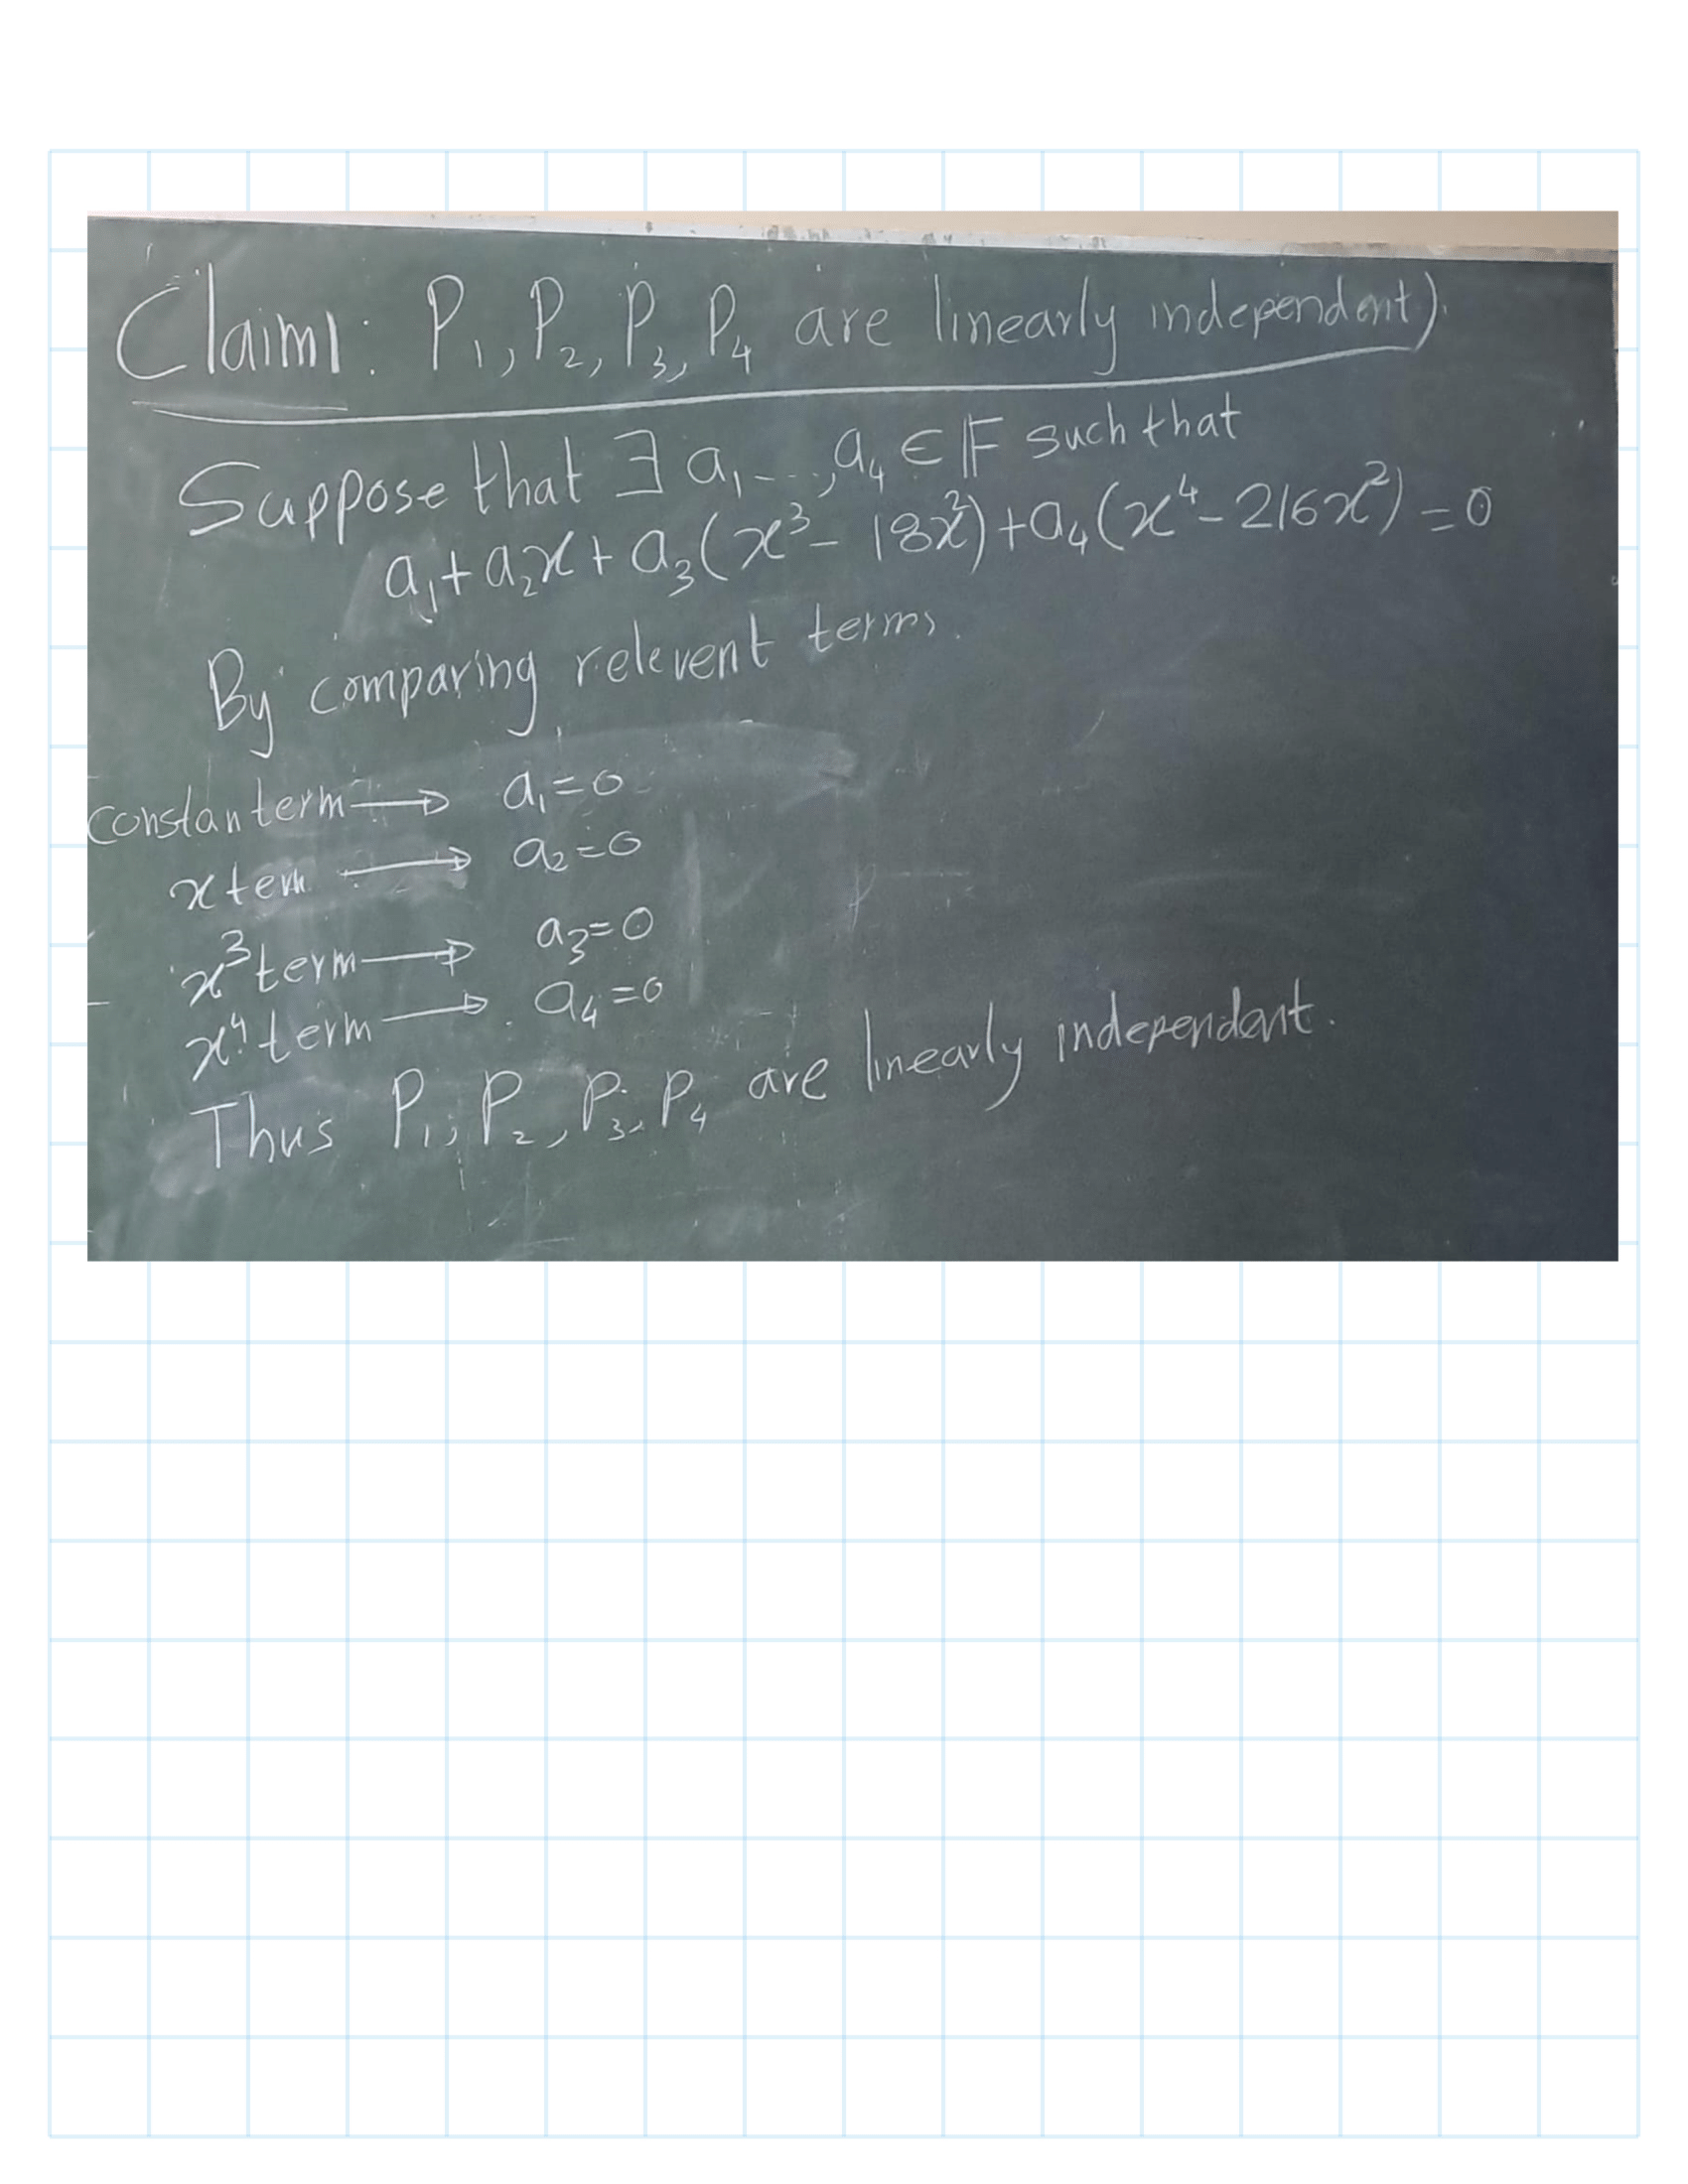 Claim1: P₁, P₂, P₃, P₄ are linearly independent).
Suppose that ∃ a₁ - - ., a₄ ∈ 𝔽 such that
a₁ + a₂x + a₃(x³ - 18x²) + a₄(x⁴ - 216x²) = 0
By comparing relevent terms.
constanterm → a₁ = 0
x term → a₂ = 0
x³ term → a₃ = 0
x⁴ term → a₄ = 0
Thus P₁, P₂, P₃, P₄ are linearly independent.